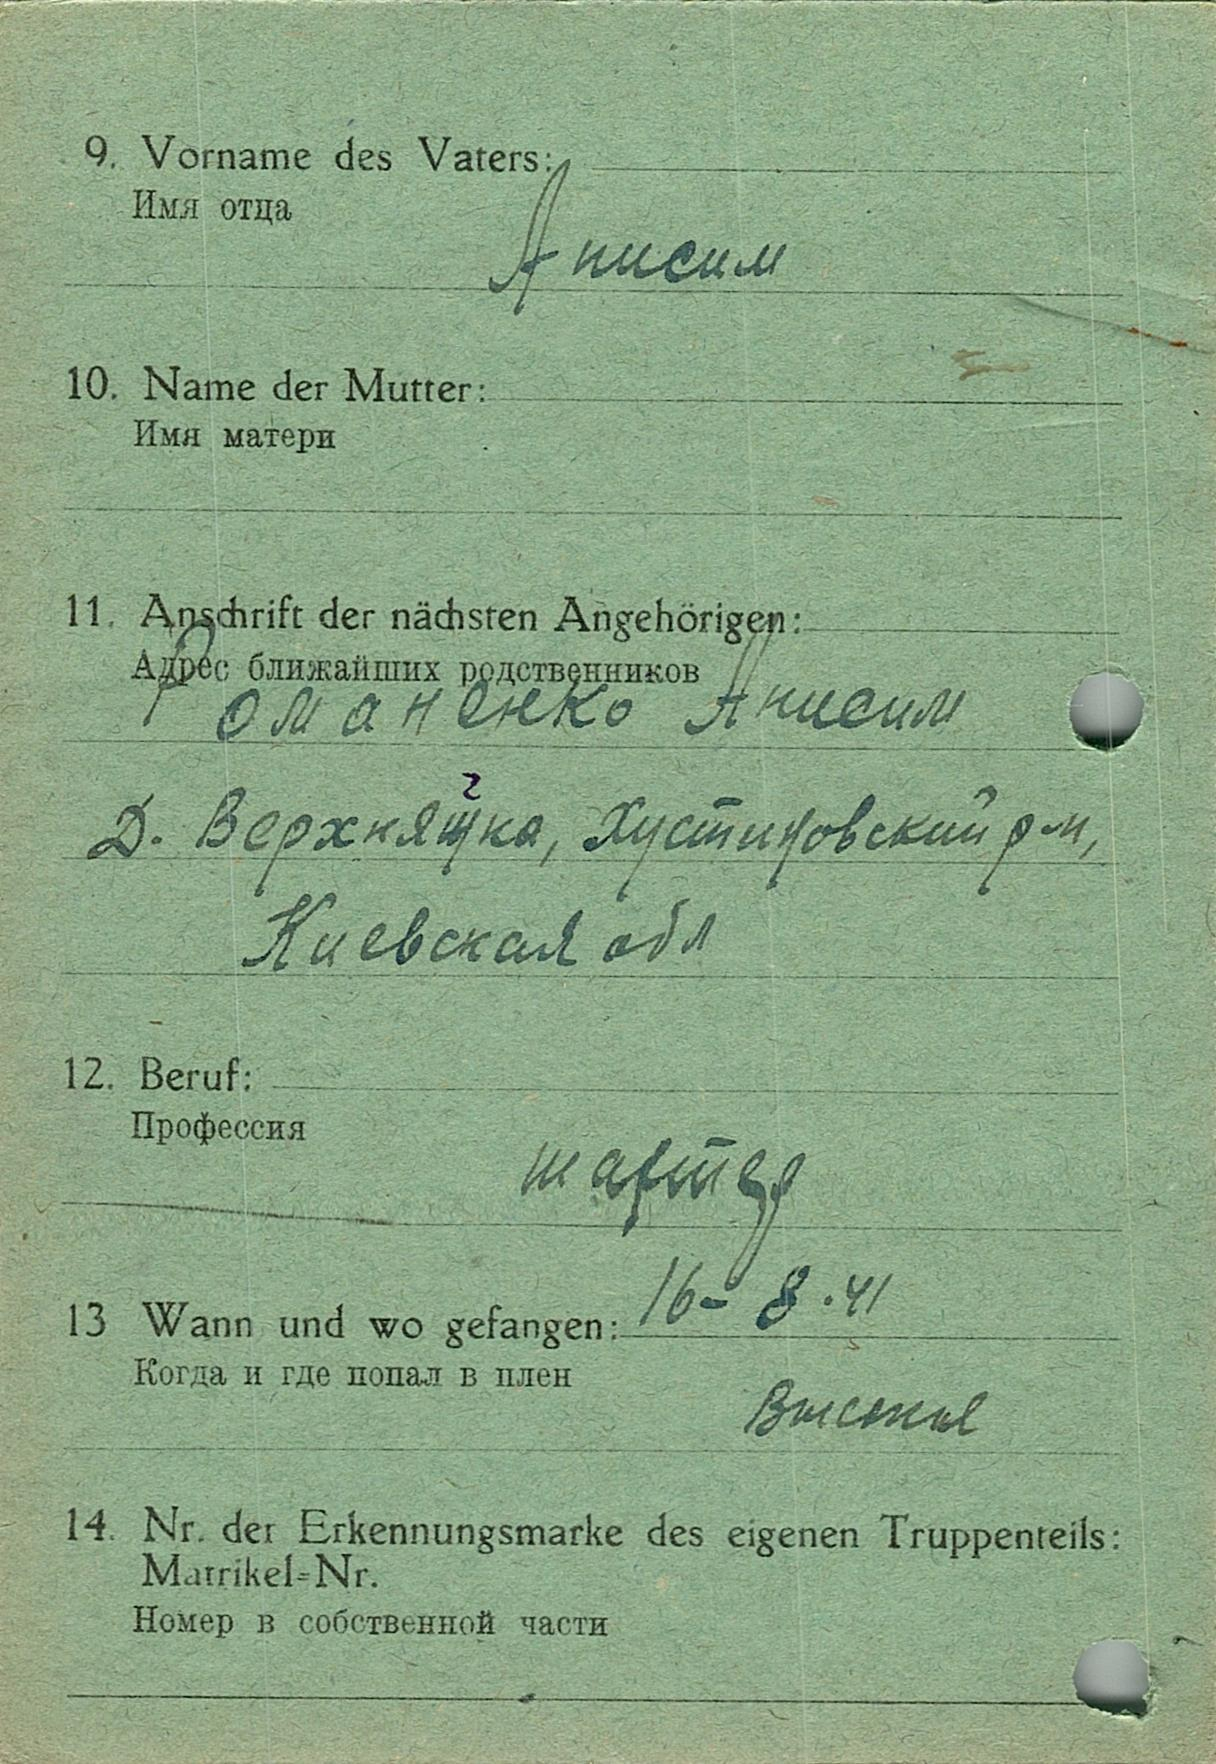 9. Vorname des Vaters:
Имя отца
Анисим
10. Name der Mutter:
Имя матери
11. Anschrift der nächsten Angehörigen:
Адрес ближайших родственников
Романенко Анисим
Д. Верхнячка, Хустиновский р-н,
Киевская обл
12. Beruf:
Профессия
шахтер
13 Wann und wo gefangen: 16-8.41
Когда и где попал в плен
14. Nr. der Erkennungsmarke des eigenen Truppenteils:
Matrikel-Nr.
Номер в собственной части